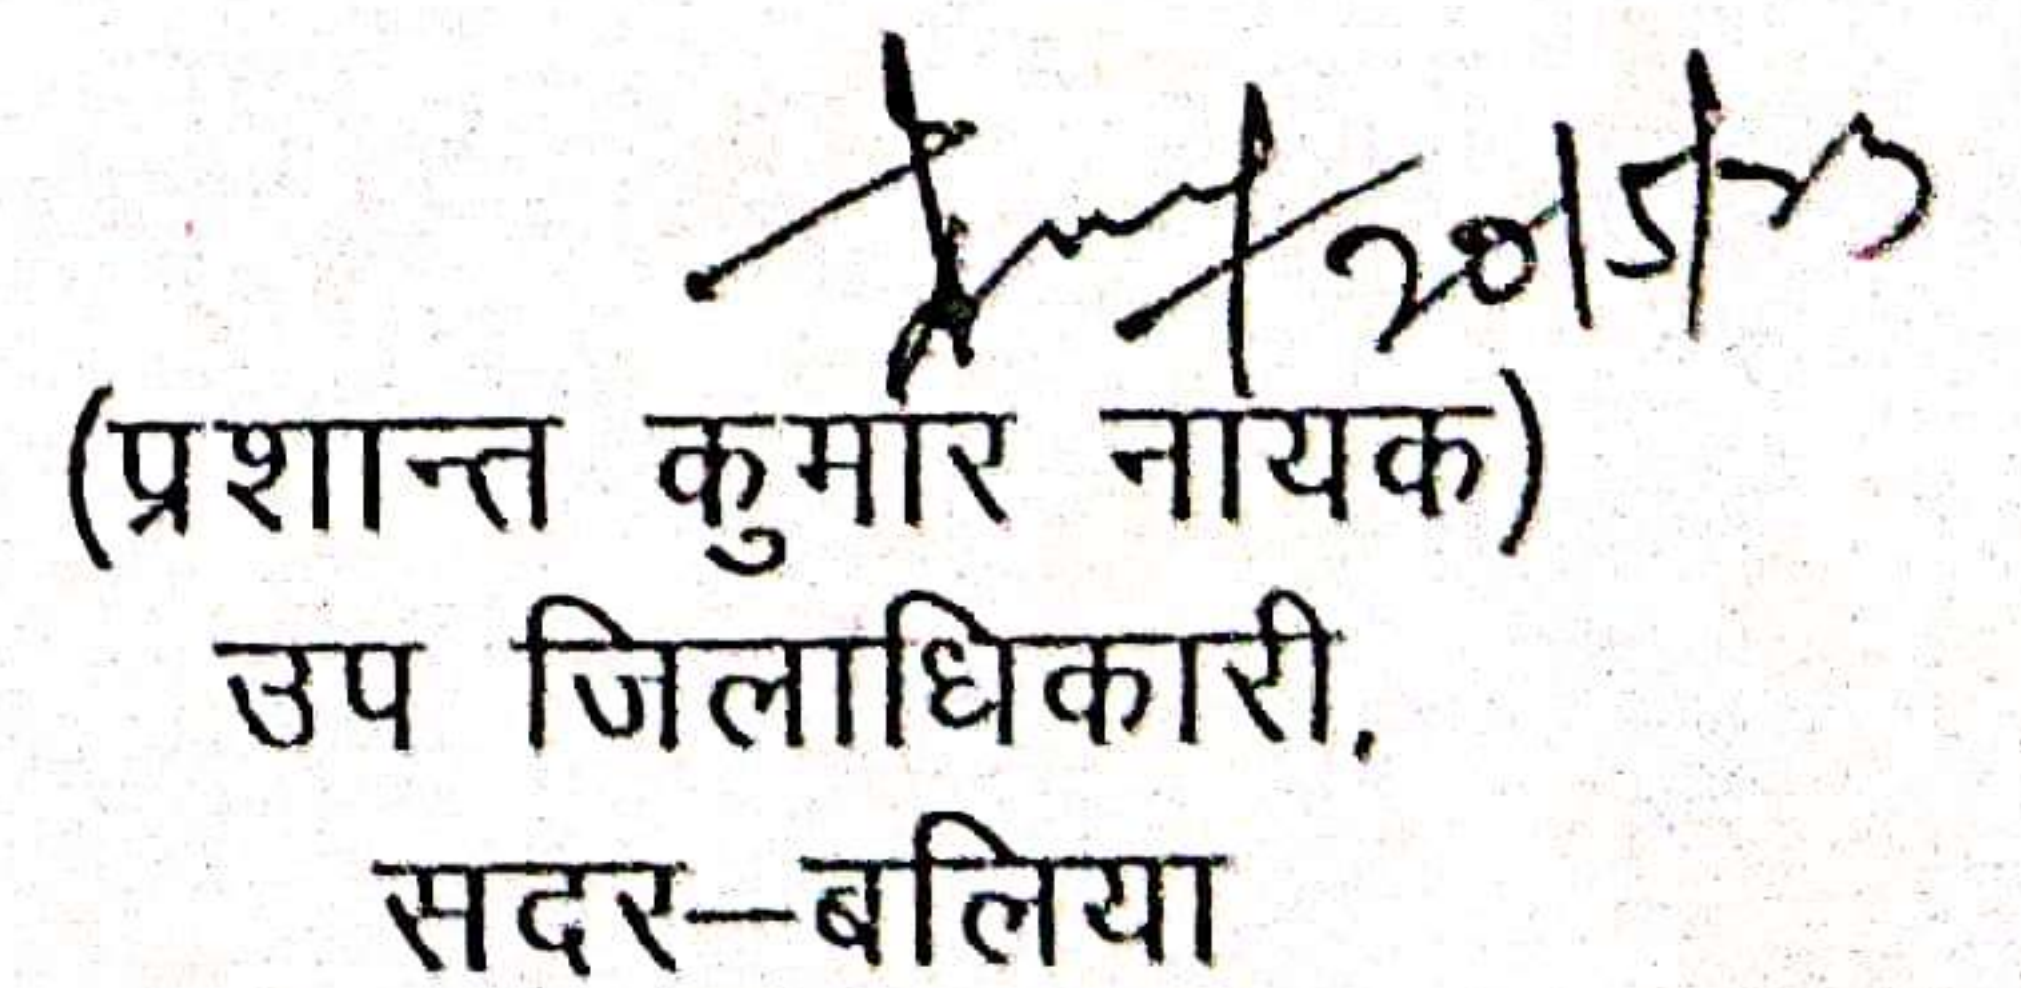 (प्रशान्त कुमार नायक)
उप जिलाधिकारी,
सदर–बलिया